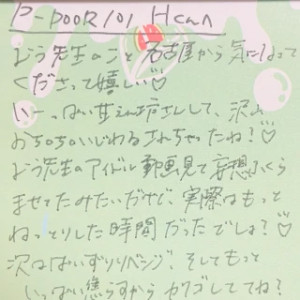 P-DOOR/01 Hさん
どう先生のこと名古屋から気になって
くださって嬉しい♡
いーっぱい甘えん坊さんして、沢山
おちちいじわるされちゃったね!♡
どう先生のアイドル動画見て妄想ふくら
ませてたみたいだけど、実際はもっと
ねっとりした時間だったでしょ?♡
次はぱいずりリベンジ、そしてもっと
いっぱい焦らすからカクゴしててね?